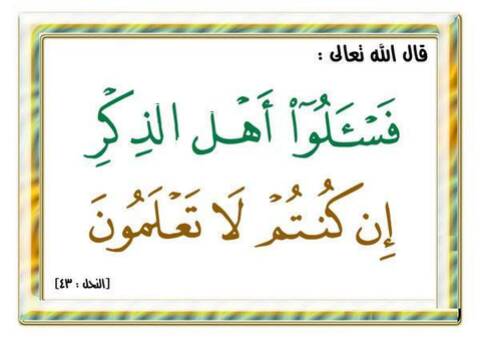 قال الله تعالى :
فَسْـَٔلُوٓا۟ أَهْلَ الذِّكْرِ
إِن كُنتُمْ لَا تَعْلَمُونَ
[النحل : ٤٣]